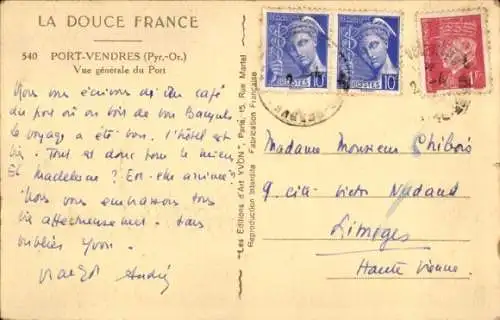 LA DOUCE FRANCE
540 PORT-VENDRES (Pyr.-Or.)
Vue générale du Port
Nous vous écrivons ici du café
du port où on bois de bon Banyuls
Le voyage a été bon. l'hôtel est
bien. Tout est donc pour le mieux.
Et Madeleine ? Est-elle arrivée ?
Nous vous embrassons tous
bien affectueusement. sans
oublier Yvon.
Margot André
"Les Editions d'Art YVON", Paris, 15, Rue Martel
Reproduction Interdite - Fabrication Française
10c POSTES 10c
POSTES 10c
Madame Monsieur Chibois
9 cité Victor Nadaud
Limoges
Haute Vienne.